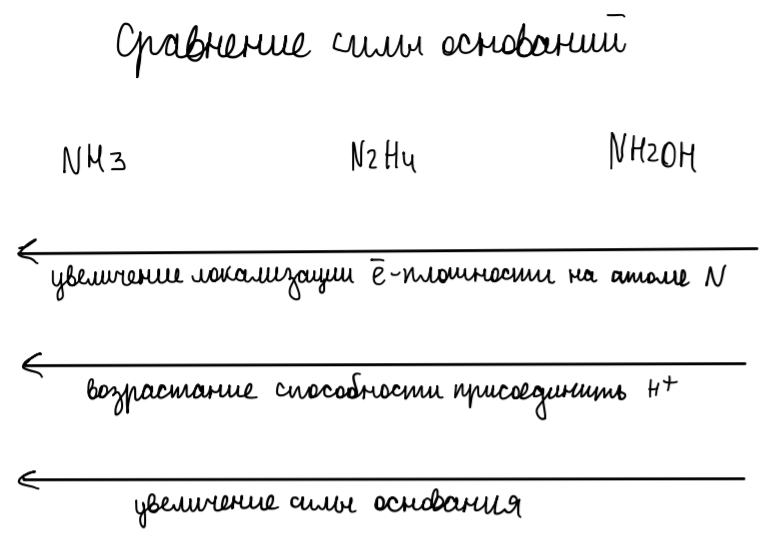 Сравнение силы оснований
NH3 N2H4 NH2OH
увеличение локализации ē-плотности на атоме N
возрастание способности присоединить H+
увеличение силы основания